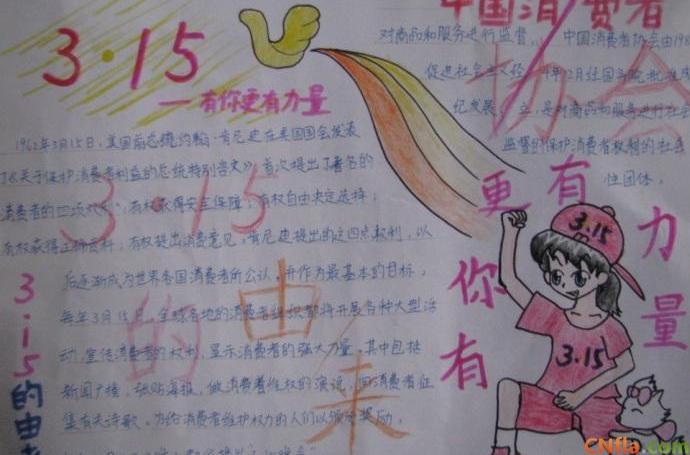 3·15
—有你更有力量
1962年3月15日，美国前总统约翰·肯尼迪在美国国会发表
了《关于保护消费者利益的总统特别咨文》，首次提出了著名的
消费者的四项权利：有权获得安全保障；有权自由决定选择；
有权获得正确资料；有权提出消费意见。肯尼迪提出的这四点权利，以
后逐渐成为世界各国消费者所公认，并作为最基本的目标，
每年3月15日，全球各地的消费者组织都将开展各种大型活
动，宣传消费者的权利，显示消费者的强大力量。其中包括
新闻广播，张贴海报，做消费者维权的演说，向消费者征
集有关诗歌，为给消费者维护权力的人们以颁发奖励，
3·15的由来
3·15的由
中国消费者
协会
对商品和服务进行监督，中国消费者协会由198
促进社会主义经 4年12月经国务院批准成
纪发展。立，是对商品和服务进行社会
监督的保护消费者权利的社会
性团体。
有你更有力量
3·15
3·15
CNfla.com